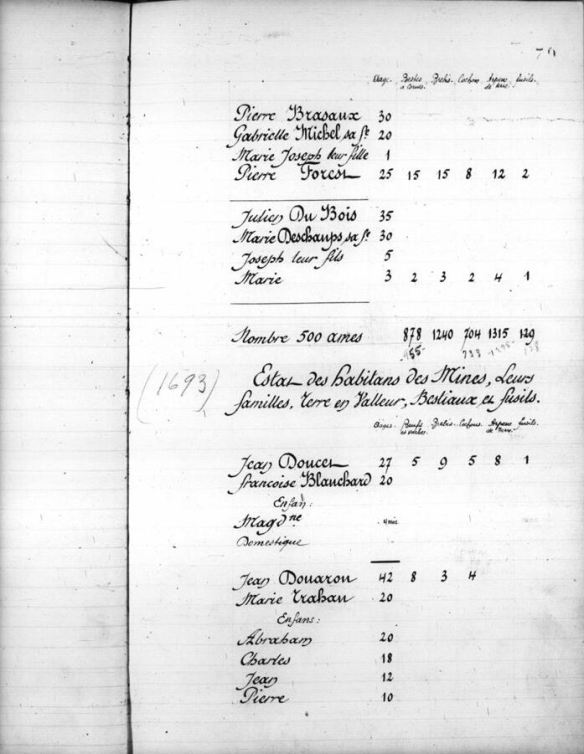 Eages. Bestes a cornes. Brebis. Cochons. Arpens de terre. fusils.
Pierre Brasaux 30
Gabrielle Michel sa fe. 20
Marie Joseph leur fille 1
Pierre Forest 25 15 15 8 12 2
Julien Du Bois 35
Marie Deschamps sa fe. 30
Joseph leur fils 5
Marie 3 2 3 2 4 1
Nombre 500 ames 878 1240 704 1315 129
(1693)
Estat des habitans des Mines, Leurs
familles, Terre en Valleur, Bestiaux et fusils.
Eages. Brebis. Cochons. Arpens de terre. fusils.
Jean Doucet 27 5 9 5 8 1
francoise Blanchard 20
Enfan:
Magdne
Domestique
Jean Douaron 42 8 3 4
Marie Trahan 20
Enfans:
Abraham 20
Charles 18
Jean 12
Pierre 10